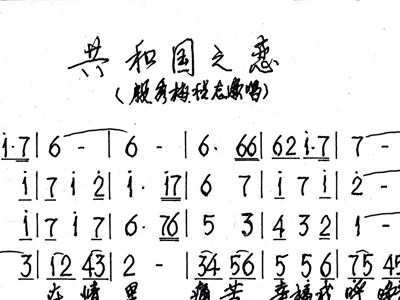 共和国之恋
(殷秀梅 程志演唱)
i·7 | 6 - | 6 - | 6· 66 | 62 i·7 | 7 -
i | 7 i 2 | i· i7 | 6 7 | i 7 i | 2 -
i | 7 i 7 | 6· 76 | 5 3 | 4 3 2 | 1 -
3 | 12 43 | 2 - | 34 56 | 5 5 6 | 75 45
在 情 里 痛 苦 幸 福 我